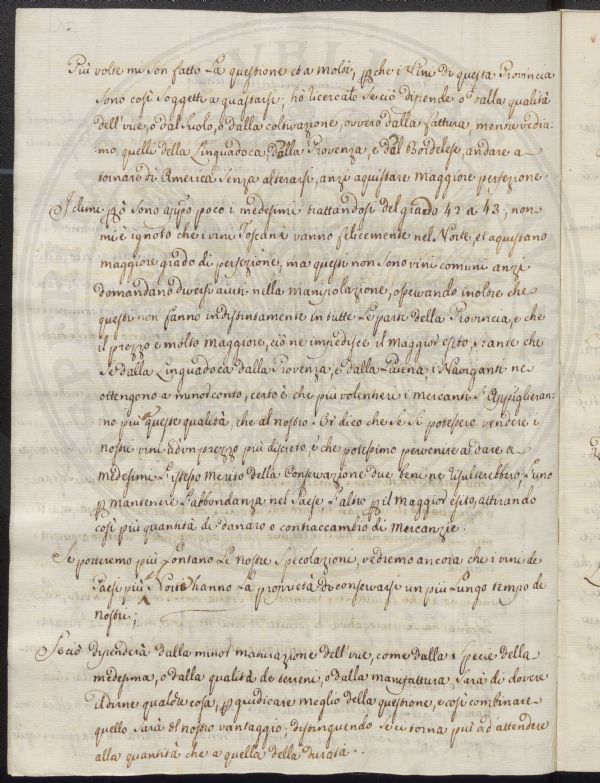 Più volte mi son fatto La questione et a molti, perche i Vini di questa Provincia
sono così soggetti a guastarsi; hò ricercato se ciò dipende o dalla qualità
dell'vue, o dal suolo, o dalla coltivazione, ovvero dalla fattura, mentre vedia:
mo quelli della Linguadoca, dalla Provenza, e dal Bordelese, andare a
tornare di America senza alterarsi, anzi aquistare maggiore perfezione.
I climi però sono apresso poco i medesimi trattandosi del grado 42 a 43, non
mi è ignoto che i vini Toscani vanno felicemente nel Norte, et aquistano
maggiore grado di perfezione, ma questi non sono vini comuni anzi
domandano diversi aiuti nella manipolazione, osservando inoltre che
questi non fanno indistintamente in tutte Le parti della Provincia, e che
il prezzo è molto maggiore, ciò ne impedisce il maggior esito, stante che
se dalla Linguadoca dalla Provenza, e dalla i Naviganti ne
ottengono a minor conto, certo è che più volentieri i mercanti s'appiglieran:
no più a queste qualità, che al nostro. Or dico che se si potessero vendere i
nostri vini ad vn prezzo più discreto, e che potessimo pervenire a dare a
medesimi L'istesso merito della Conservazione due beni ne risulterebbero, L'uno
per mantenere L'abbondanza nel Paese, L'altro per il maggior esito, attirando
così più quantità di danaro o contraccambio di mercanzie.
Se porteremo più Lontano Le nostre specolazioni, vedremo ancora che i vini de
Paesi più a Norte hanno La proprietà di conservarsi un più Lungo tempo de
nostri;
Se ciò dipenderà dalla minor maturazione dell'vue, come dalla specie della
medesima, o dalla qualità de terreni, o dalla manifattura sarà di dovere
il dirne qualche cosa, per giudicare meglio della questione, e così combinare
quello sarà di nostro vantaggio, distinguendo se ci torna più ad attendere
alla quantità che a quella della durata.